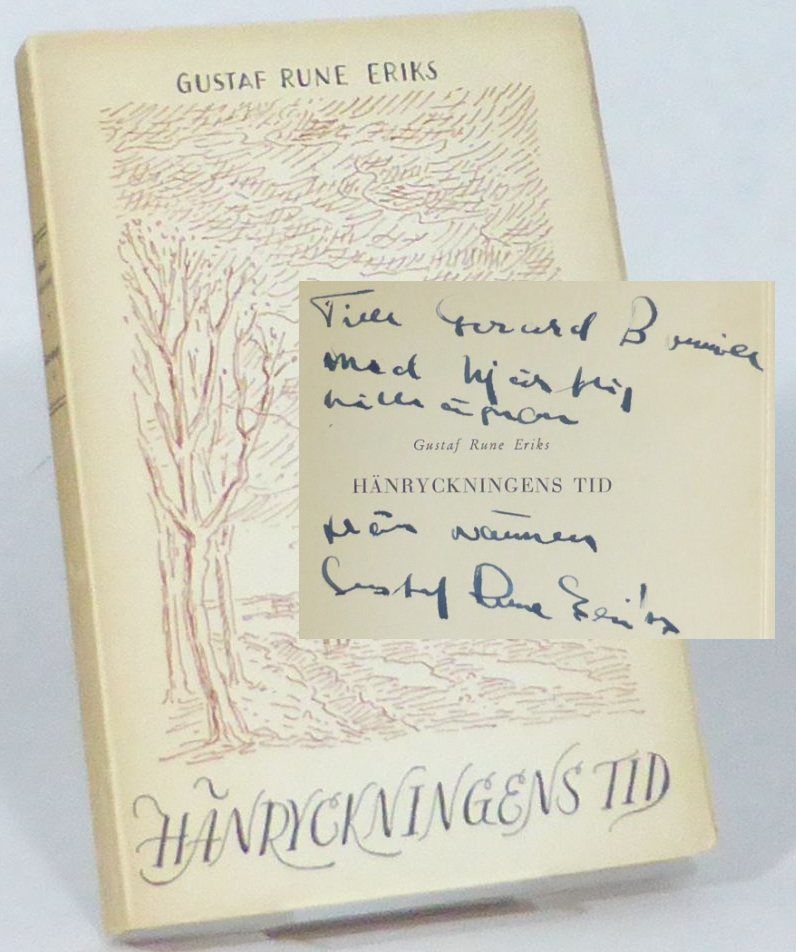 GUSTAF RUNE ERIKS
Till Gerard Bonnier
med hjärtlig
tillägnan
Gustaf Rune Eriks
HÄNRYCKNINGENS TID
från vännen
Gustaf Rune Eriks
HÄNRYCKNINGENS TID